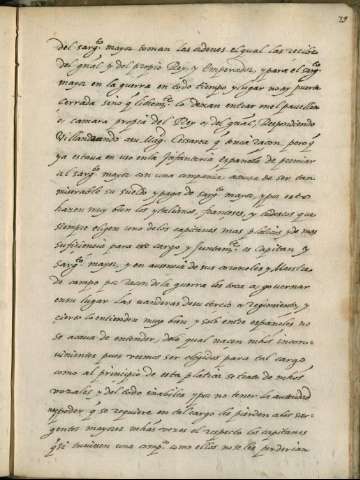 29
del sargᵗᵒ mayor toman las ordenes el qual las recibe
del gnãl y del propio Rey, y Emperador, y para el sargᵗᵒ
mayor en la guerra en todo tiempo y lugar no ay puerta
cerrada sino q̃ lo dexan entrar en el pavellon
o camara propia del Rey o del gnãl, Respondiendo
Villandrando a su Magᵈ Cesarea q̃ tenia razon, pero q̃
ya estava en uso en la Infanteria española de premiar
al sargᵗᵒ mayor con una compañia a causa de ser tan
miserable su sueldo y paga de sargᵗᵒ mayor, y por esto
hazen muy bien los ytalianos, franceses, y tudescos que
siempre eligen uno de los capitanes mas platicos y de mas
suficiencia para este cargo y juntamᵗᵉ es capitan y
sargᵗᵒ mayor, y en ausencia de sus coroneles y Maestres
de campo por razon de la guerra les toca a governar
en su lugar las vanderas de su tercio o regimiento, y
cierto lo entienden muy bien y solo entre españoles no
se acava de entender, de lo qual nacen muchos incon-
vinientes pues vemos ser elegidos para tal cargo
como al principio de esta platica se trata de muchos
vozales y del todo inabiles y por no tener la autoridad
y poder q̃ se requiere en tal cargo les pierden a los sar-
gentos mayores muchas vezes el respecto los capitanes
q̃ si tuviesen una compᵃ como ellos no se les perderian